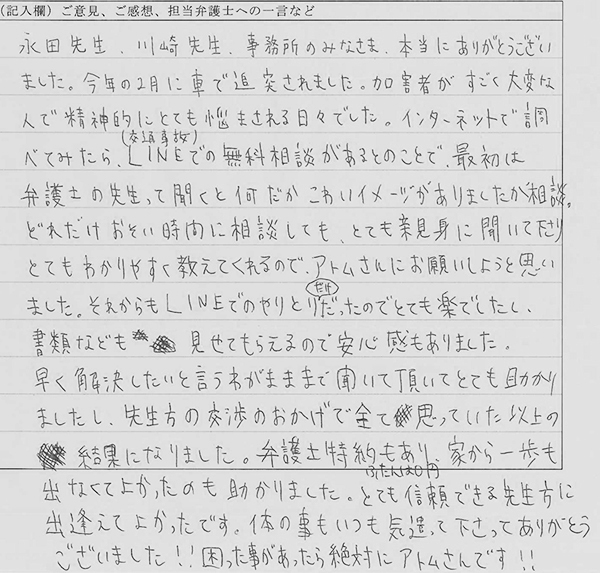 (記入欄) ご意見、ご感想、担当弁護士への一言など
永田先生、川崎先生、事務所のみなさま、本当にありがとうござい
ました。今年の2月に車で追突されました。加害者がすごく大変な
人で精神的にとても悩まされる日々でした。インターネットで調
(交通事故)
べてみたら、LINEでの無料相談があるとのことで、最初は
弁護士の先生って聞くと何だかこわいイメージがありましたが相談。
どれだけおそい時間に相談しても、とても親身に聞いて下さり
とてもわかりやすく教えてくれるので、アトムさんにお願いしようと思い
ました。それからもLINEでのやりとりだけだったのでとても楽でしたし、
書類なども 見せてもらえるので安心感もありました。
早く解決したいと言うわがまままで聞いて頂いてとても助かり
ましたし、先生方の交渉のおかげで全て思っていた以上の
結果になりました。弁護士特約もあり、家から一歩も
ふたんは0円
出なくてよかったのも助かりました。とても信頼できる先生方に
出逢えてよかったです。体の事もいつも気遣って下さってありがとう
ございました!!困った事があったら絶対にアトムさんです!!